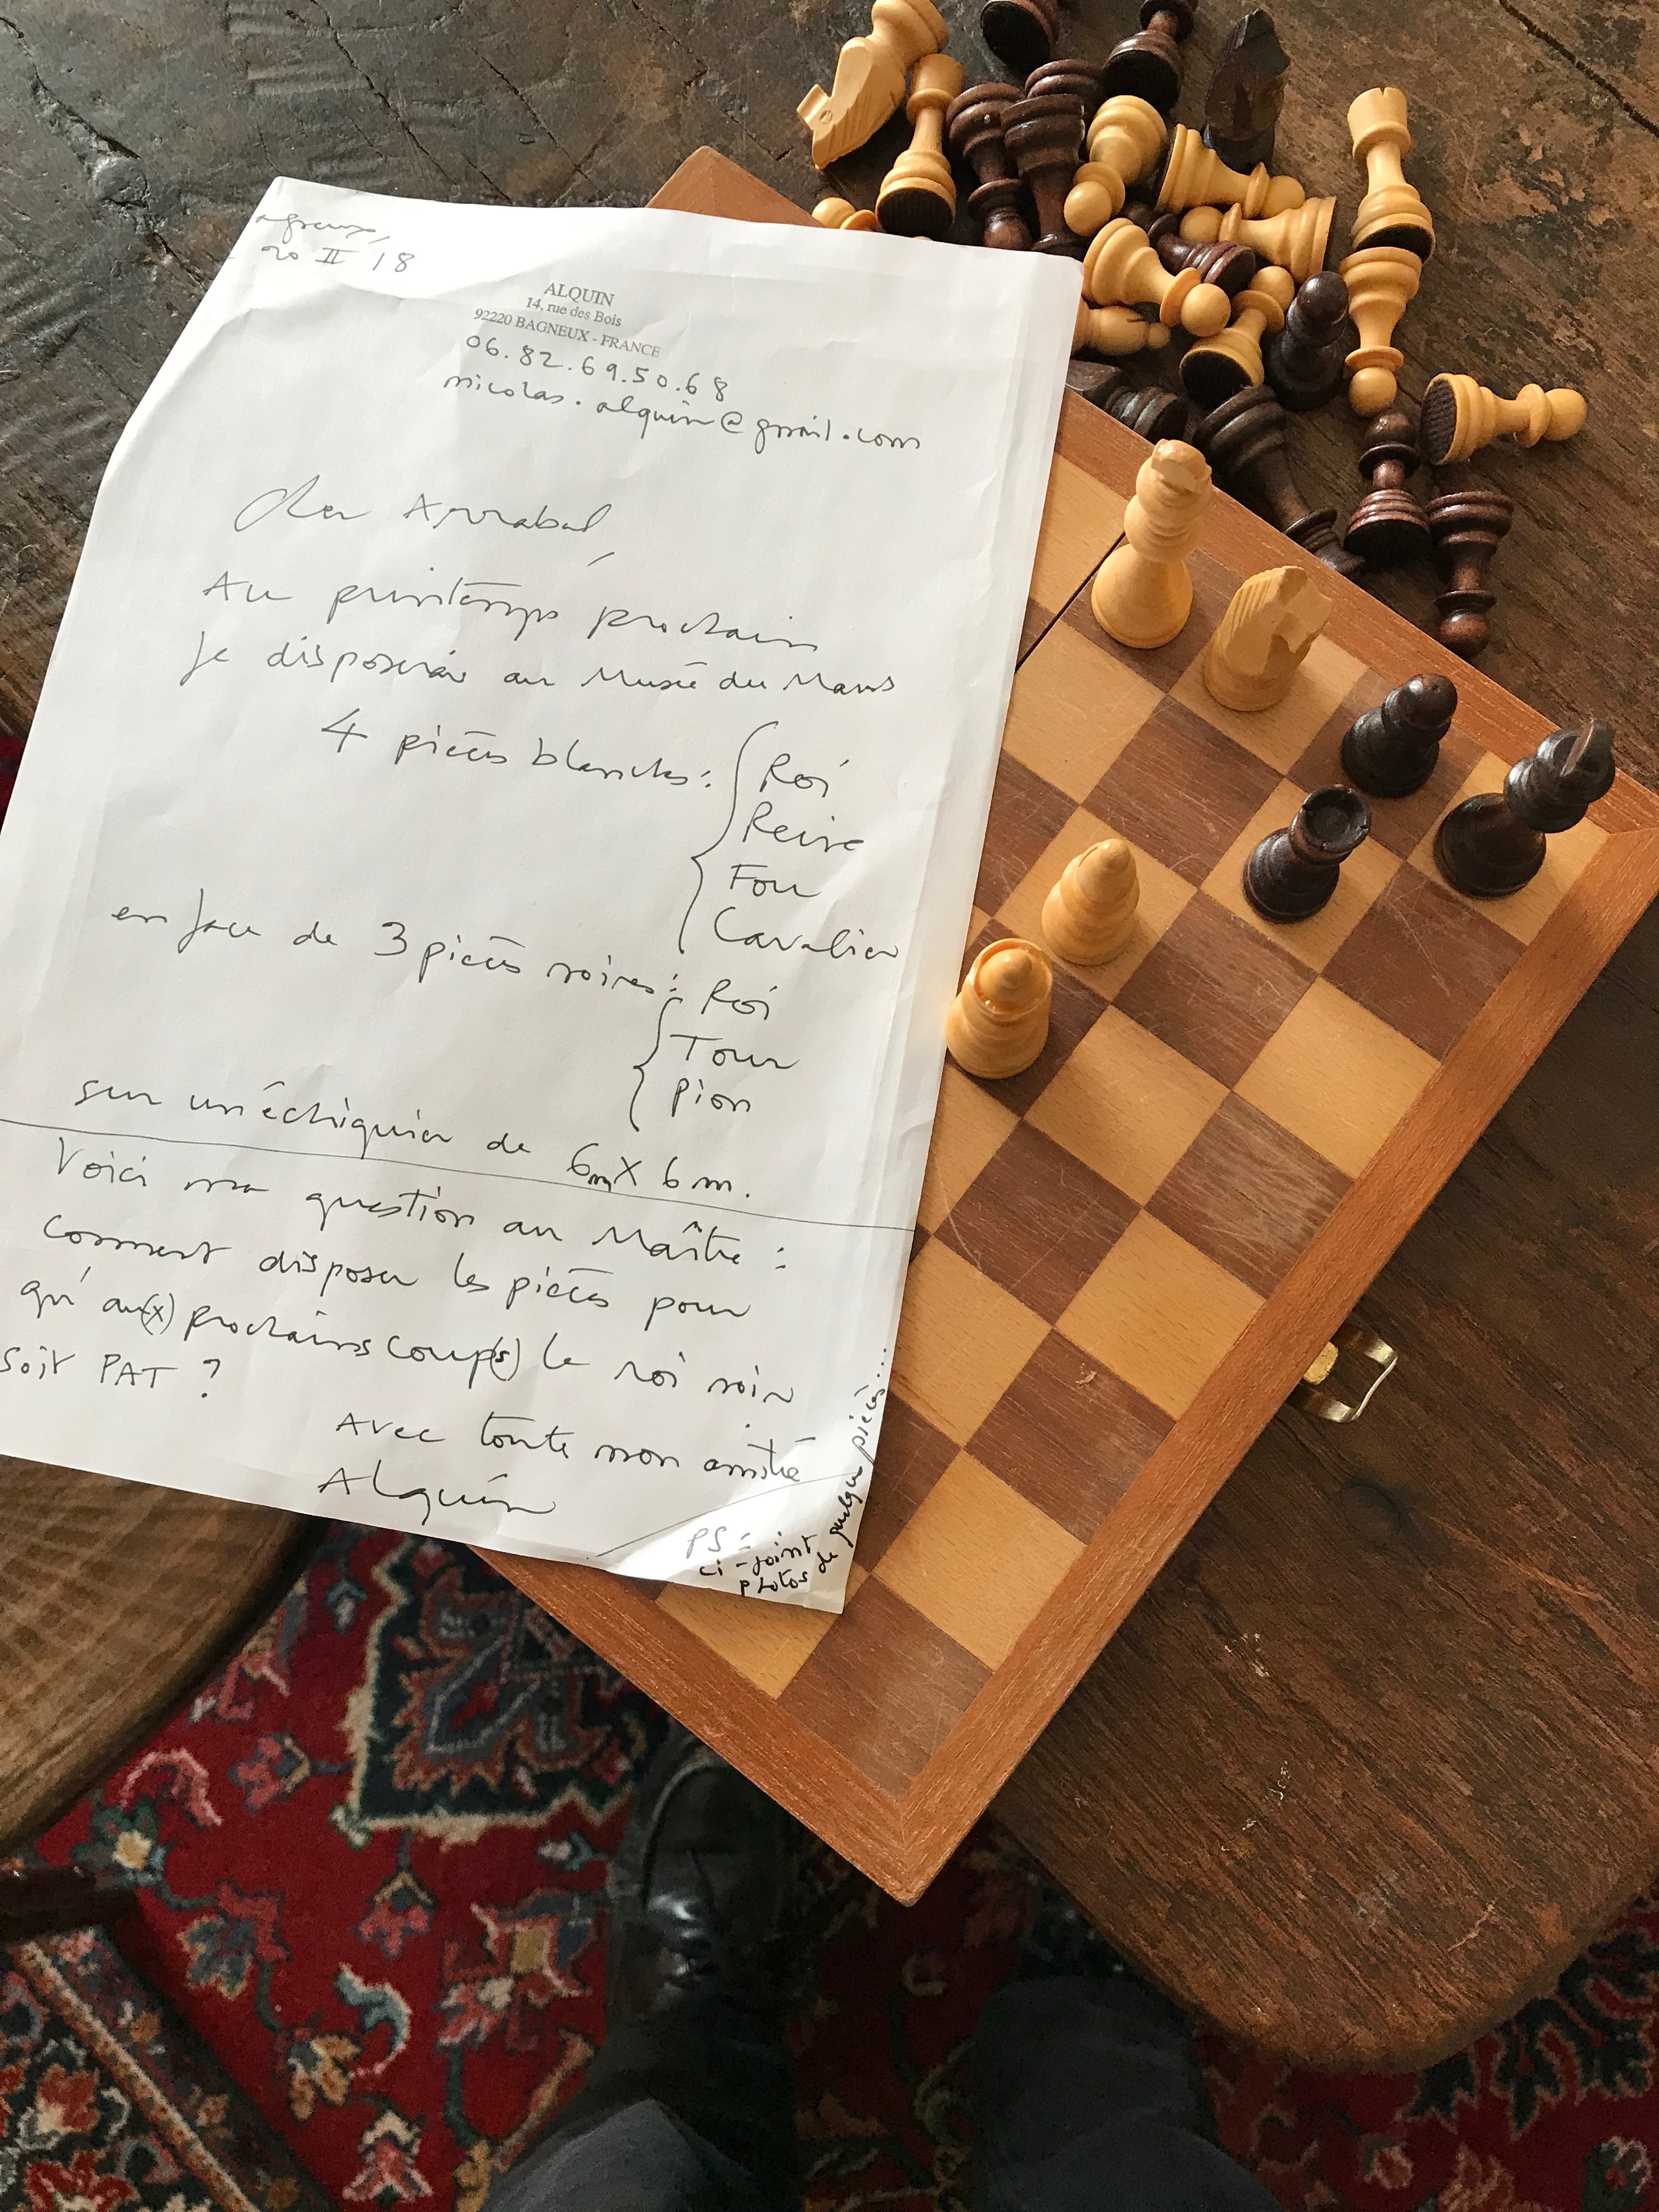 20 II 18
ALQUIN
14, rue des Bois
92220 BAGNEUX - FRANCE
06.82.69.50.68
nicolas.alquin@gmail.com
Cher Arrabal,
Au printemps prochain
je disposerai au Musée du Mans
4 pièces blanches : Roi
Reine
Fou
Cavalier
en face de 3 pièces noires : Roi
Tour
pion
sur un échiquier de 6m X 6m.
Voici ma question au Maître :
comment disposer les pièces pour
qu'au(x) prochains coup(s) le roi noir
soit PAT ?
Avec toute mon amitié
Alquin
PS :
ci-joint
photos de quelques pièces...